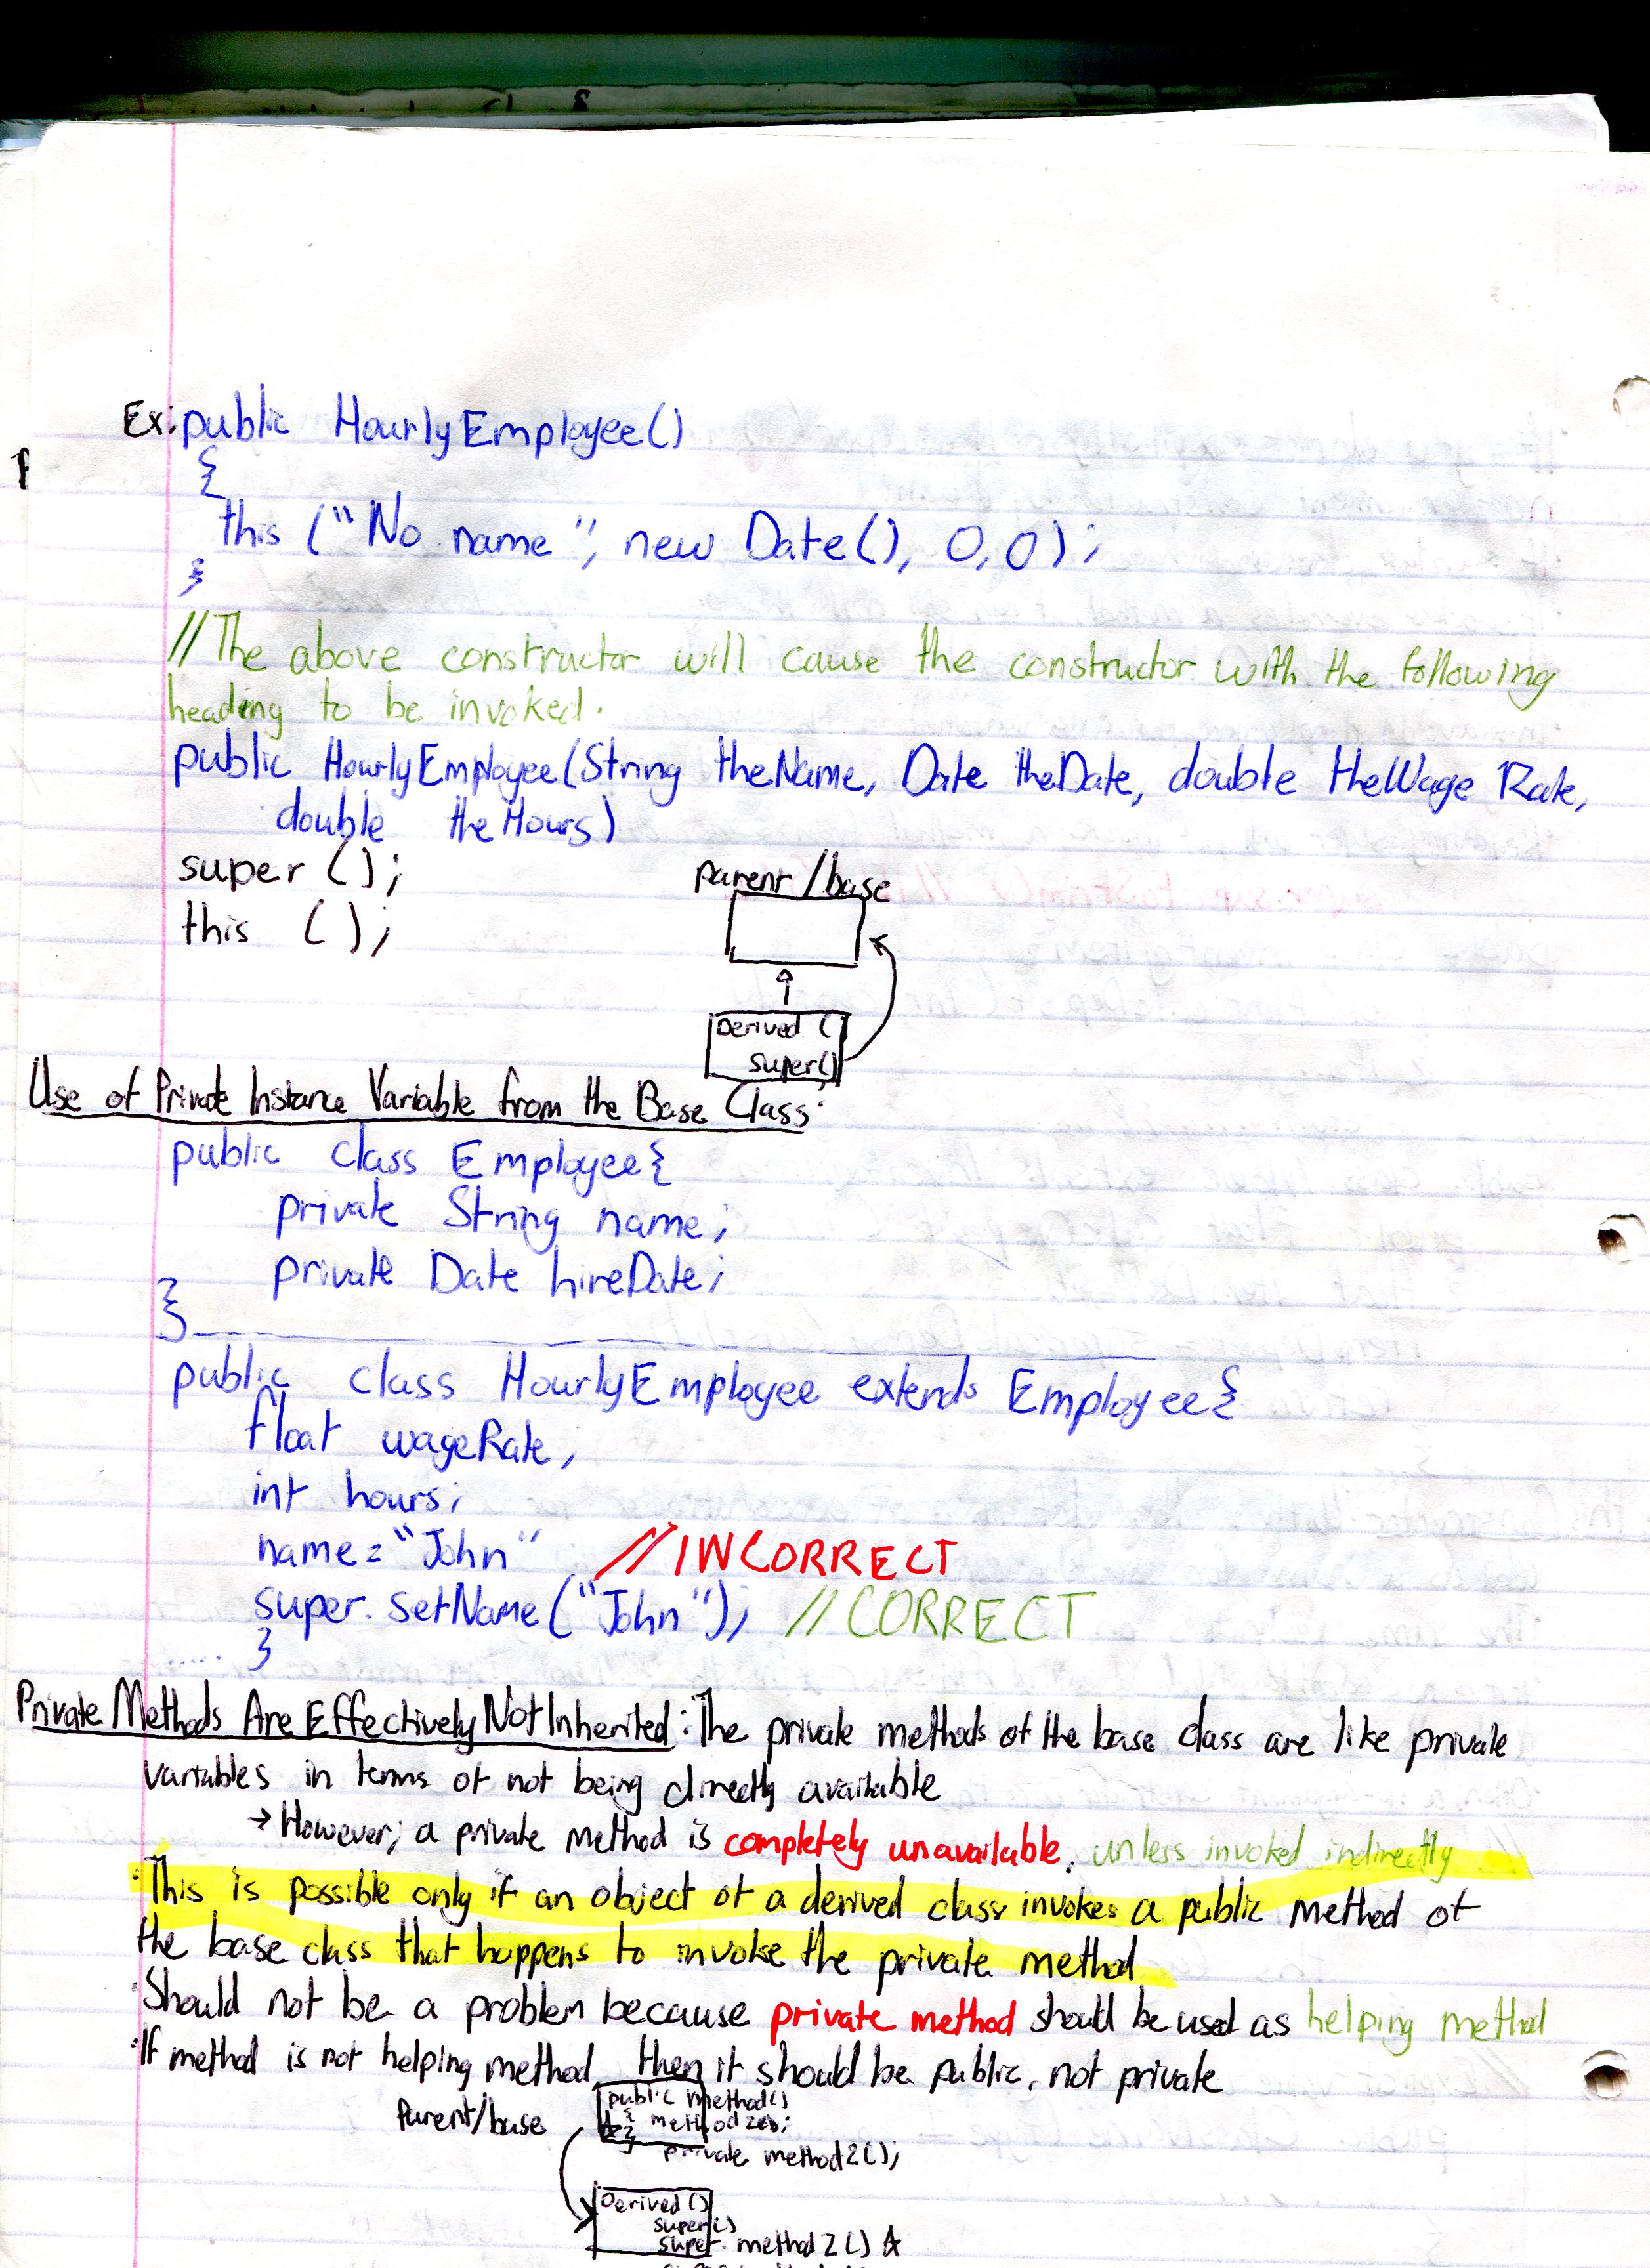 Ex: public HourlyEmployee()
{
this ("No name", new Date(), 0,0);
}
//The above constructor will cause the constructor with the following
heading to be invoked.
public HourlyEmployee(String theName, Date theDate, double theWage Rate,
double theHours)
super ();
this ();
parent/base
Derived ()
super()
Use of Private Instance Variable from the Base Class:
public class Employee{
private String name;
private Date hireDate;
}
public class HourlyEmployee extends Employee{
float wageRate,
int hours;
name="John" //INCORRECT
super.setName("John"); //CORRECT
}
Private Methods Are Effectively Not Inherited: The private methods of the base class are like private
variables in terms of not being directly available
→ However, a private method is completely unavailable, unless invoked indirectly
· This is possible only if an object of a derived class invokes a public method of
the base class that happens to invoke the private method
· Should not be a problem because private method should be used as helping method
· If method is not helping method, then it should be public, not private
Parent/base
public method()
{ method2();
}
private method2();
Derived()
super()
super. method2() ☆